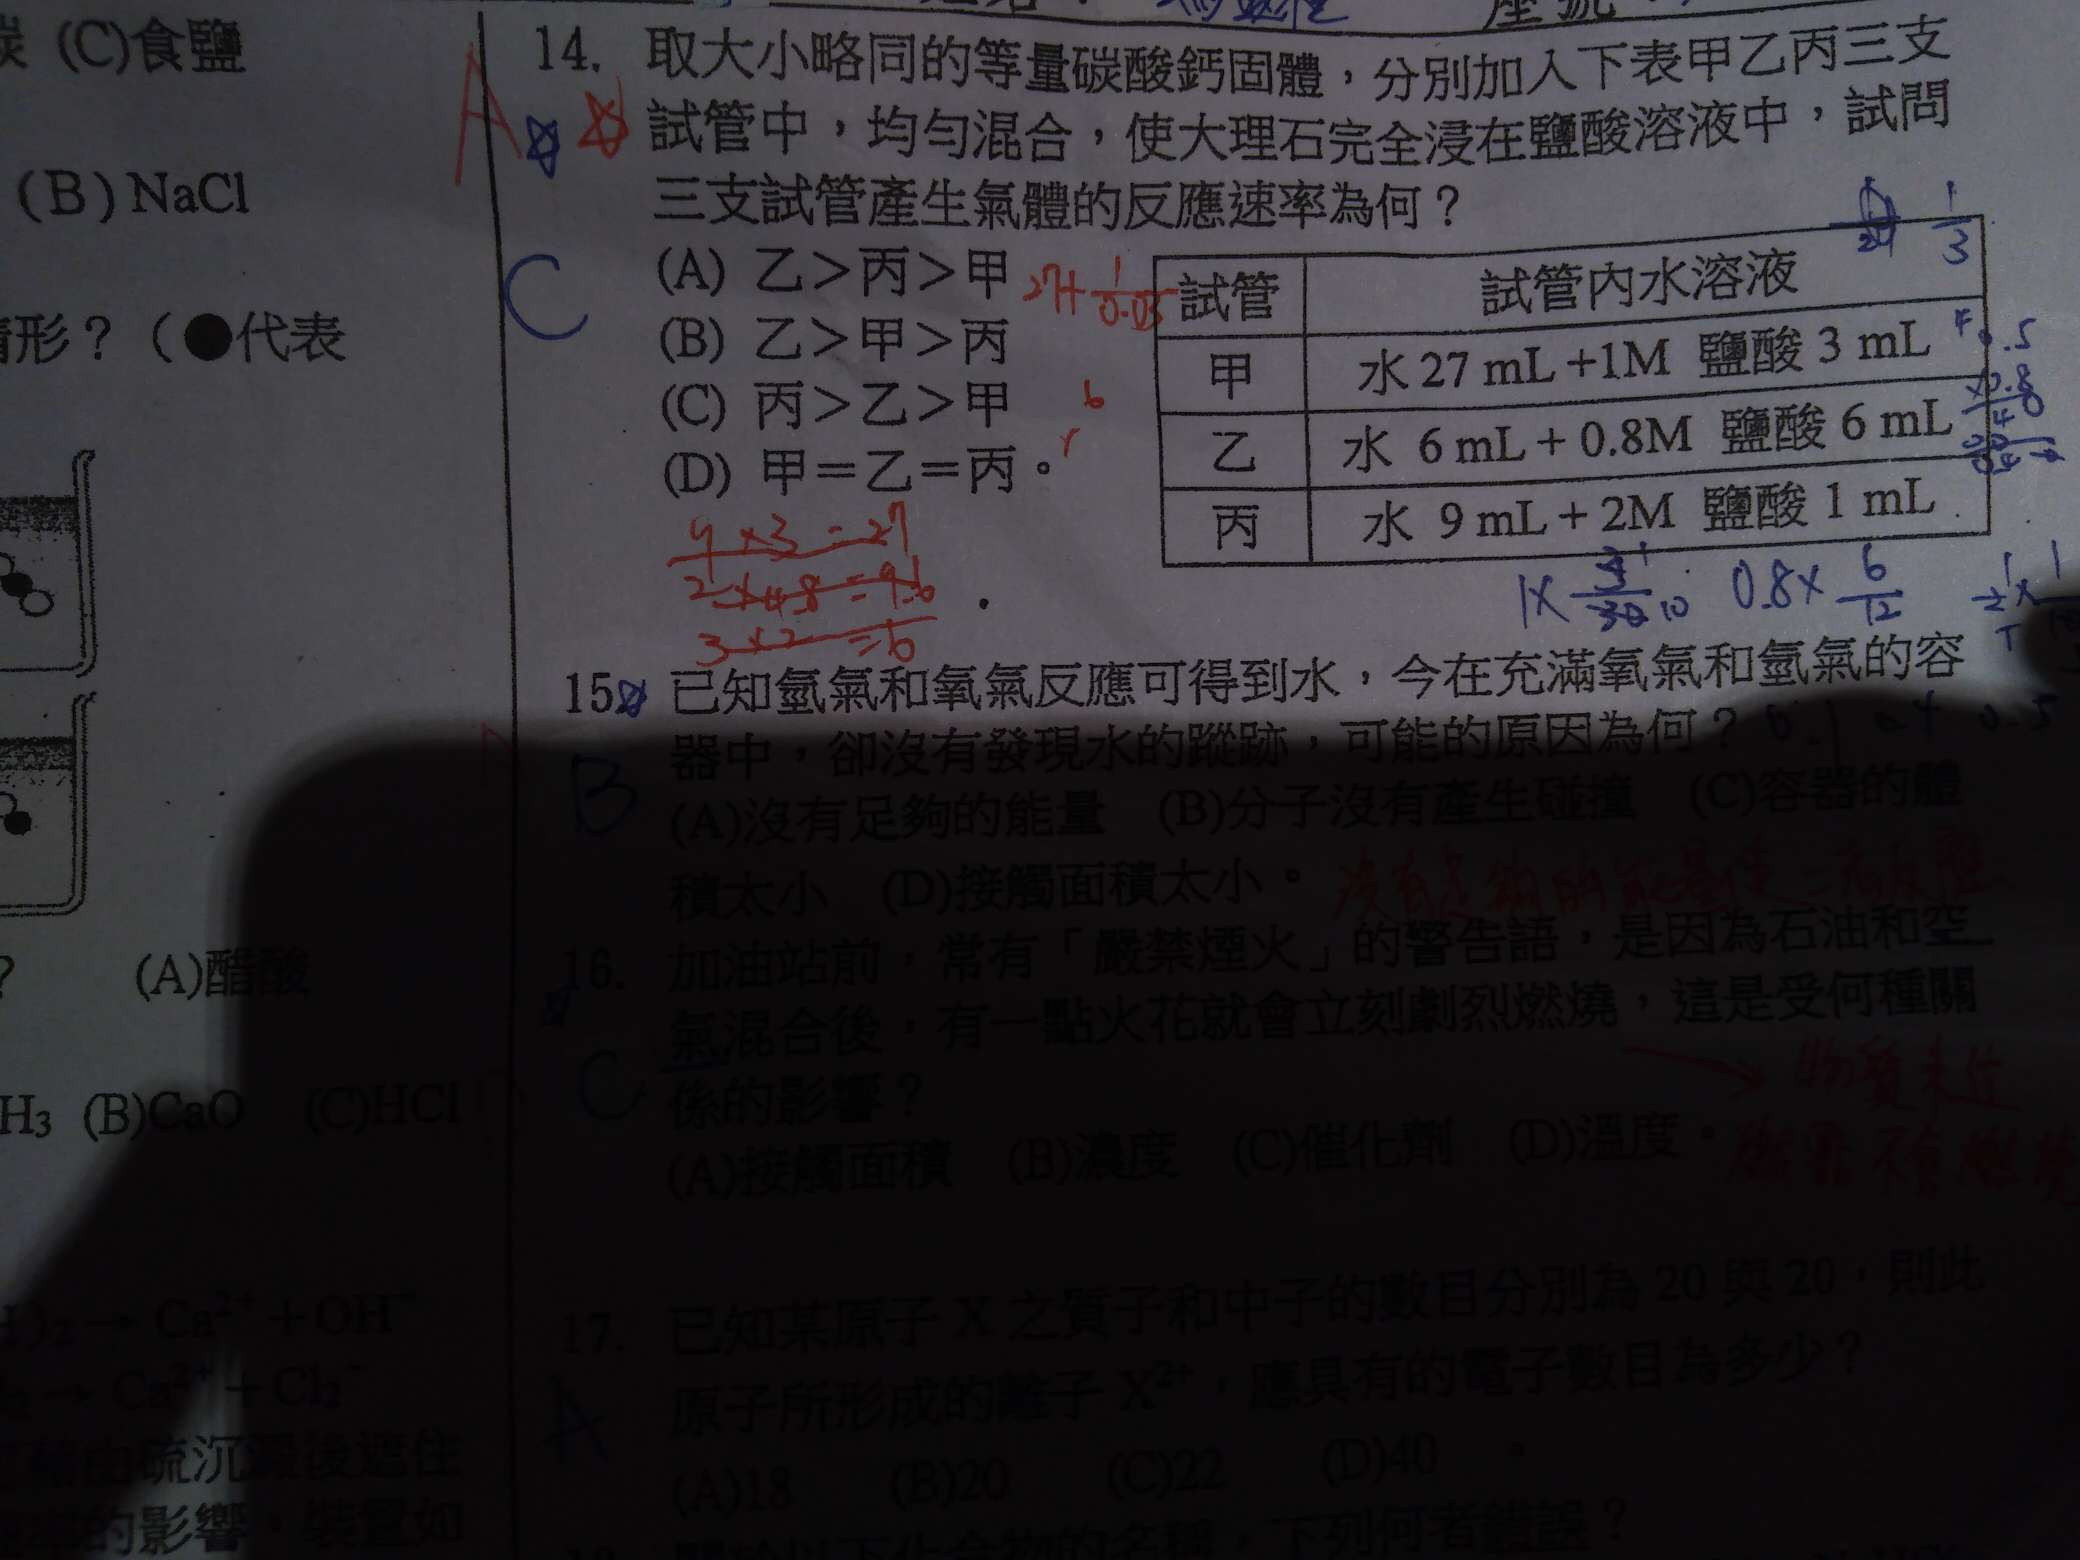 (C)食鹽
(B) NaCl
形？（●代表
(A)醋酸
H₃ (B)CaO (C)HCl
→ Ca²⁺+OH⁻
→ Ca²⁺+Cl₂⁻
由硫沉澱後遮住
的影響，裝置如
A
14. 取大小略同的等量碳酸鈣固體，分別加入下表甲乙丙三支
試管中，均勻混合，使大理石完全浸在鹽酸溶液中，試問
三支試管產生氣體的反應速率為何？
C
(A) 乙＞丙＞甲
(B) 乙＞甲＞丙
(C) 丙＞乙＞甲
(D) 甲＝乙＝丙。
試管 試管內水溶液
甲 水 27 mL +1M 鹽酸 3 mL
乙 水 6 mL + 0.8M 鹽酸 6 mL
丙 水 9 mL + 2M 鹽酸 1 mL
1/3
9×3=27
2×4.8=9.6
3×2=6
0.8× 6/12
15. 已知氫氣和氧氣反應可得到水，今在充滿氧氣和氫氣的容
器中，卻沒有發現水的蹤跡，可能的原因為何？
B
(A)沒有足夠的能量 (B)分子沒有產生碰撞 (C)容器的體
積太小 (D)接觸面積太小。
16. 加油站前，常有「嚴禁煙火」的警告語，是因為石油和空
氣混合後，有一點火花就會立刻劇烈燃燒，這是受何種關
係的影響？
C
(A)接觸面積 (B)濃度 (C)催化劑 (D)溫度。
17. 已知某原子 X 之質子和中子的數目分別為 20 與 20，則此
原子所形成的離子 X²⁺，應具有的電子數目為多少？
A
(A)18 (B)20 (C)22 (D)40
關於以下化合物的名稱，下列何者錯誤？